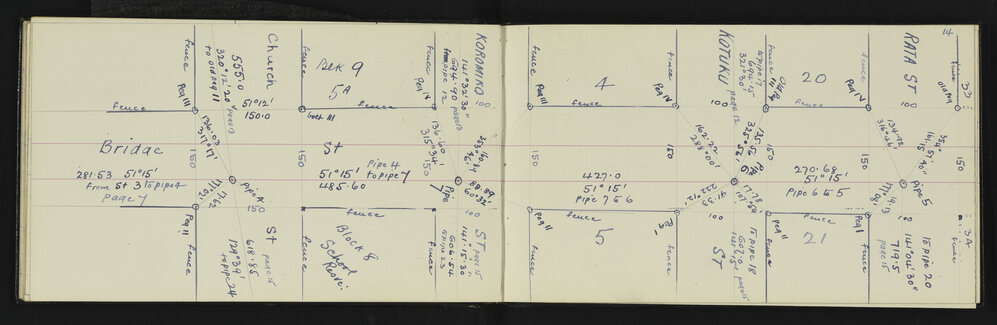 fence
Peg III
Church
555.0
320°12'20" page 13
to old peg 11
51°12'
150.0
fence
Bridge
136.03
317°17'
150
281.53 51°15'
from St 3 to pipe 4
Page 7
Pipe 4
150
Peg II
fence
St
618.85 page 15
129°39'
to pipe 24
fence
Blk 9
5A
fence
Peg IV
St
150
51°15'
485.60
Pipe 4
to pipe 7
fence
Block 8
School
Resve.
fence
fence
KOROMIKO
141°32'30"
694.90 page 13
from pipe 12
100
136.60
315°34'
150
Pipe 7
100
ST page 15
141°15'30"
606.54
fence
4
fence
Peg III
Peg IV
fence
150
427.0
51°15'
Pipe 7 & 6
Peg II
fence
5
Peg I
fence
KOTUKU page 12
100
162.22
288°00'
Pipe 6
100
ST
to pipe 18
page 15
fence
20
Peg IV
fence
150
270.68
51°15'
Pipe 6 & 5
Peg II
fence
21
Peg I
fence
RATA ST
100
134.92
316°46'
354°
150
Pipe 5
100
to pipe 20
141°04'30"
719.5
page 15
14
33
fence
old peg
150
3A
fence